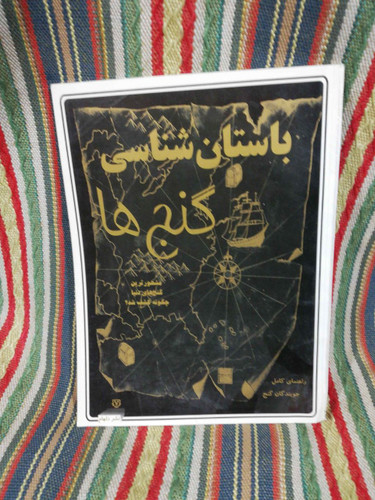 باستان شناسی
گنج ها
مشهورترین
گنج‌های دنیا
چگونه کشف شد؟
راهنمای کامل
جویندگان گنج